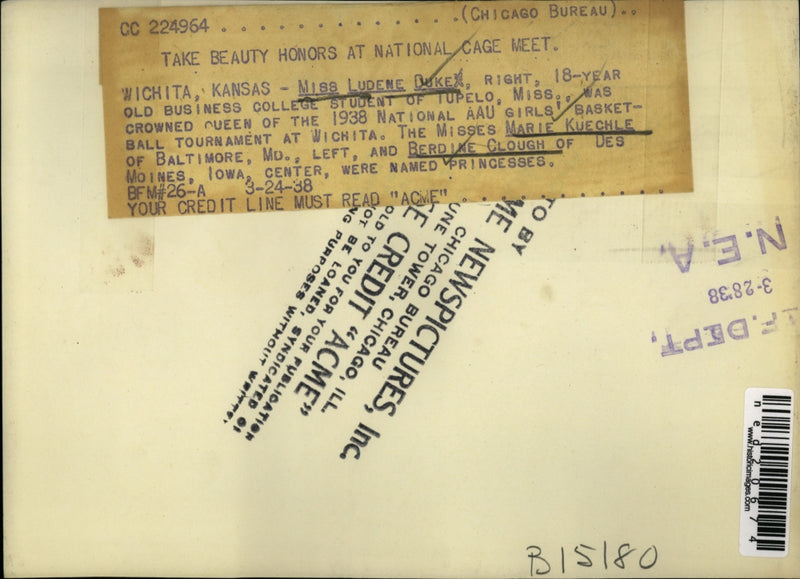 CC 224964 . . . . . . . . . . . . . . (CHICAGO BUREAU)..
TAKE BEAUTY HONORS AT NATIONAL CAGE MEET.
WICHITA, KANSAS - MISS LUDENE DUKE, RIGHT, 18-YEAR
OLD BUSINESS COLLEGE STUDENT OF TUPELO, MISS., WAS
CROWNED QUEEN OF THE 1938 NATIONAL AAU GIRLS' BASKET-
BALL TOURNAMENT AT WICHITA. THE MISSES MARIE KUECHLE
OF BALTIMORE, MD., LEFT, AND BERDINE CLOUGH OF DES
MOINES, IOWA, CENTER, WERE NAMED PRINCESSES.
BFM#26-A 3-24-38
YOUR CREDIT LINE MUST READ "ACME" . . . . . . . . . . . .
TO BY
ME NEWSPICTURES, Inc.
CHICAGO BUREAU
UNE TOWER, CHICAGO, ILL.
CE CREDIT "ACME"
OLD TO YOU FOR YOUR PUBLICATION
NOT BE LOANED, SYNDICATED OR
NG PURPOSES WITHOUT WRITT
N.E.A.
3-28'38
F. DEPT.
ned20674
www.historicimages.com
B15180